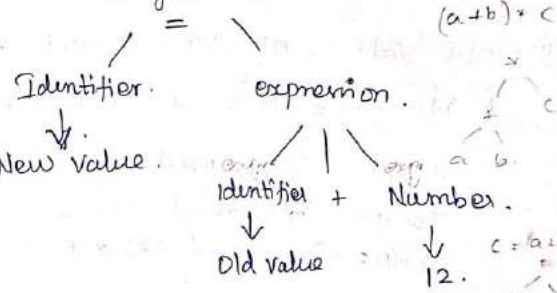 =
(a+b) * c
Identifier. expression.
* c
New value. + a b
Identifier + Number.
Old value 12.
c = a